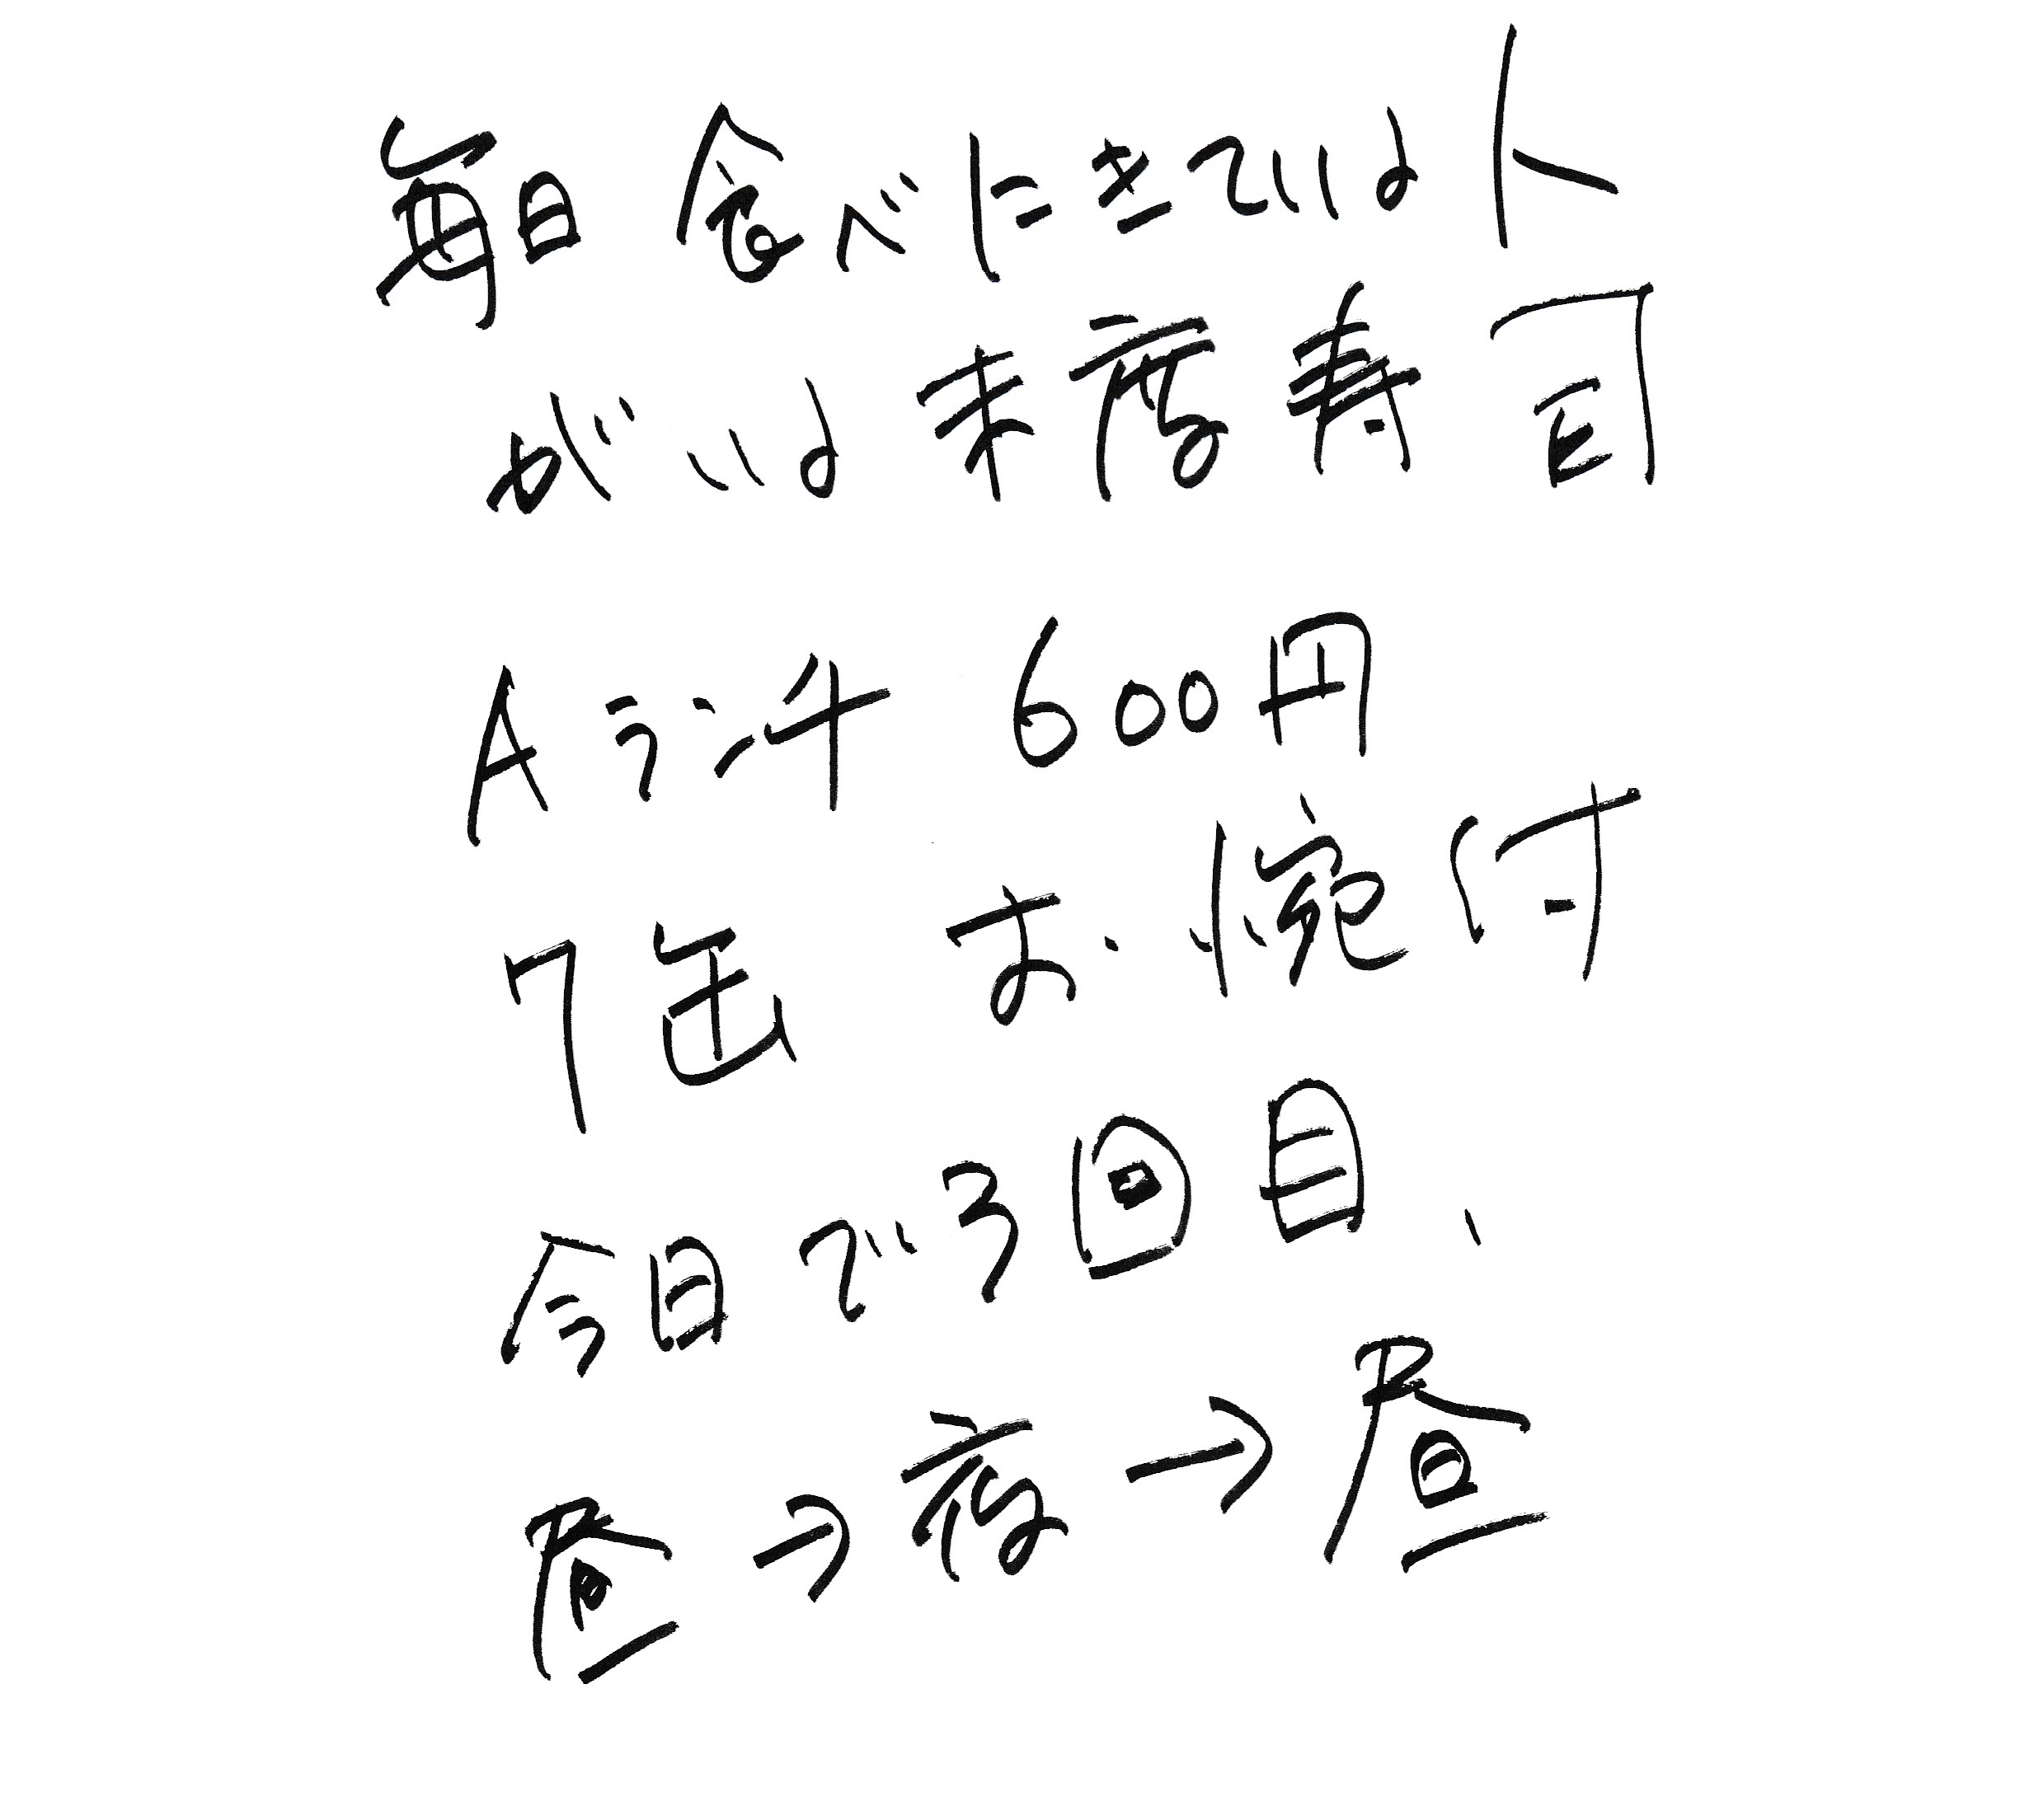 毎日食べにきている人
がいる 寿司
Aランチ 600円
7缶 お椀付
今日で3回目、
昼→夜→昼